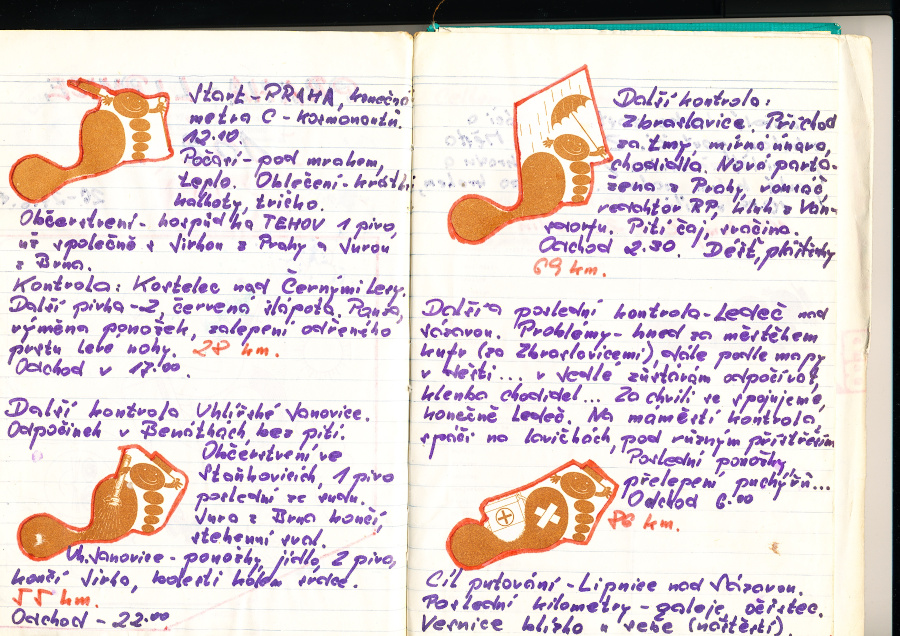 Start - PRAHA, konečná
metra C - Kosmonautů.
12.10.
Počasí - pod mrakem,
teplo. Oblečení - krátké
kalhoty, tričko.
Občerstvení - hospůdka TEHOV 1 pivo,
už společně s Jirkou z Prahy a Jurou
z Brna.
Kontrola: Kostelec nad Černými lesy.
Další pivka - 2, červená šlápota. Pauza,
výměna ponožek, zalepení odřeného
prstu levé nohy. 28 km.
Odchod v 17.00.
Další kontrola Uhlířské Janovice.
Odpočinek v Benátkách, bez pití.
Občerstvení ve
Staňkovicích, 1 pivo
poslední ze sudu.
Jura z Brna končí,
stehenní sval.
Uh. Janovice - ponožky, jídlo, 2 piva,
končí Jirka, bolesti kolem srdce.
55 km.
Odchod - 22.00
Další kontrola:
Zbraslavice. Příchod
za tmy, mírná únava,
chodidla. Nová parta-
zena z Prahy, vousáč,
redaktor RP, kluk z Van-
sdorfu. Pití čaj, svačina.
Odchod 2.30. Déšť, pláštěnky
69 km.
Další a poslední kontrola - Ledeč nad
Sázavou. Problémy - hned za městěčkem
kufr (za Zbraslavicemi), dále podle mapy
v dešti... v sedle zůstávám odpočívat,
klenba chodidel... Za chvíli se spojujeme,
konečně Ledeč. Na náměstí kontrola,
spáči na lavičkách, pod různým přístřeším
Poslední ponožky,
přelepení puchýřů...
Odchod 6.00
86 km.
Cíl putování - Lipnice nad Sázavou.
Poslední kilometry - galeje, očistec.
Vesnice blízko u sebe (naštěstí).